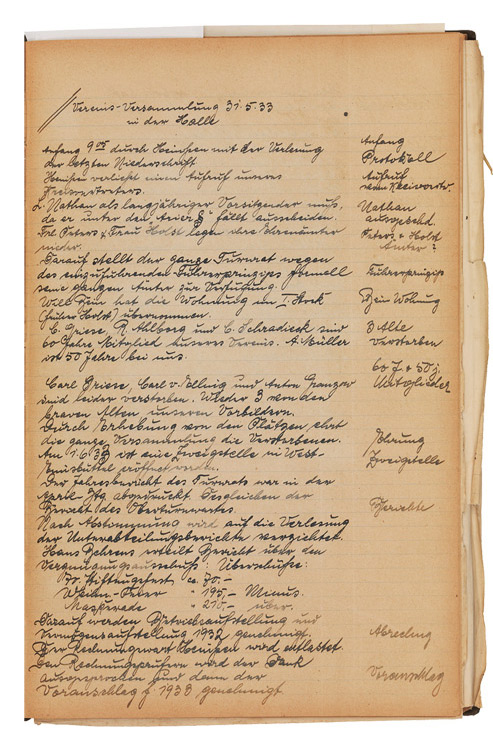 Vereins-Versammlung 31.5.33
in der Halle
Anfang 9 05 durch Heinsen mit der Verlesung
der letzten Niederschrift
Heinsen verliest einen Aufruf unseres
L. Nathan als langjähriger Vorsitzender muß,
da er unter den Arier § fällt ausscheiden.
Frl Peters & Frau Holst legen ihre Ehrenämter
nieder.
Darauf stellt der ganze Turnrat wegen
des einzuführenden Führerprinzips formell
seine ganzen Ämter zur Verfügung.
Will Bein hat die Wohnung im I. Stock
(früher Holst) übernommen.
C. Griese, R. Ahlborg und C. Schradieck sind
60 Jahre Mitglied unseres Vereins. A. Müller
ist 50 Jahre bei uns.
Carl Griese, Carl v. und Anton
sind leider verstorben. Wieder 3 von den
braven Alten unseren Vorbildern.
Durch Erhebung von den Plätzen ehrt
die ganze Versammlung die Verstorbenen.
Am 1.6.33 ist eine Zweigstelle in West-
Eimsbüttel eröffnet worden.
Der Jahresbericht des Turnrats war in der
April-Ztg abgedruckt. Desgleichen der
Bericht des Oberturnwartes.
Nach Abstimmung wird auf die Verlesung
der Unterabteilungsberichte verzichtet.
Hans Behrens erteilt Bericht über den
Vergnügungsausschuß: Überschüsse:
Stiftungsfest ca. 70,-
Weihn.-Feier " 195,- Minus.
Maskerade " 210,- über.
Darauf werden Betriebsaufstellung und
Vermögensaufstellung 1932 genehmigt.
Der Rechnungswart Heinsen wird entlastet.
Den Rechnungsprüfern wird der Dank
ausgesprochen und dann der
Voranschlag f. 1933 genehmigt.
Anfang
Protokoll
Aufruf
Nathan
ausgeschd.
Peters & Holst
Ämter ?
Führerprinzips
Bein Wohnung
3 Alte
verstorben
60 J. & 50 j.
Mitglieder
Ehrung
Zweigstelle
Berichte
Abrechng
Voranschlag